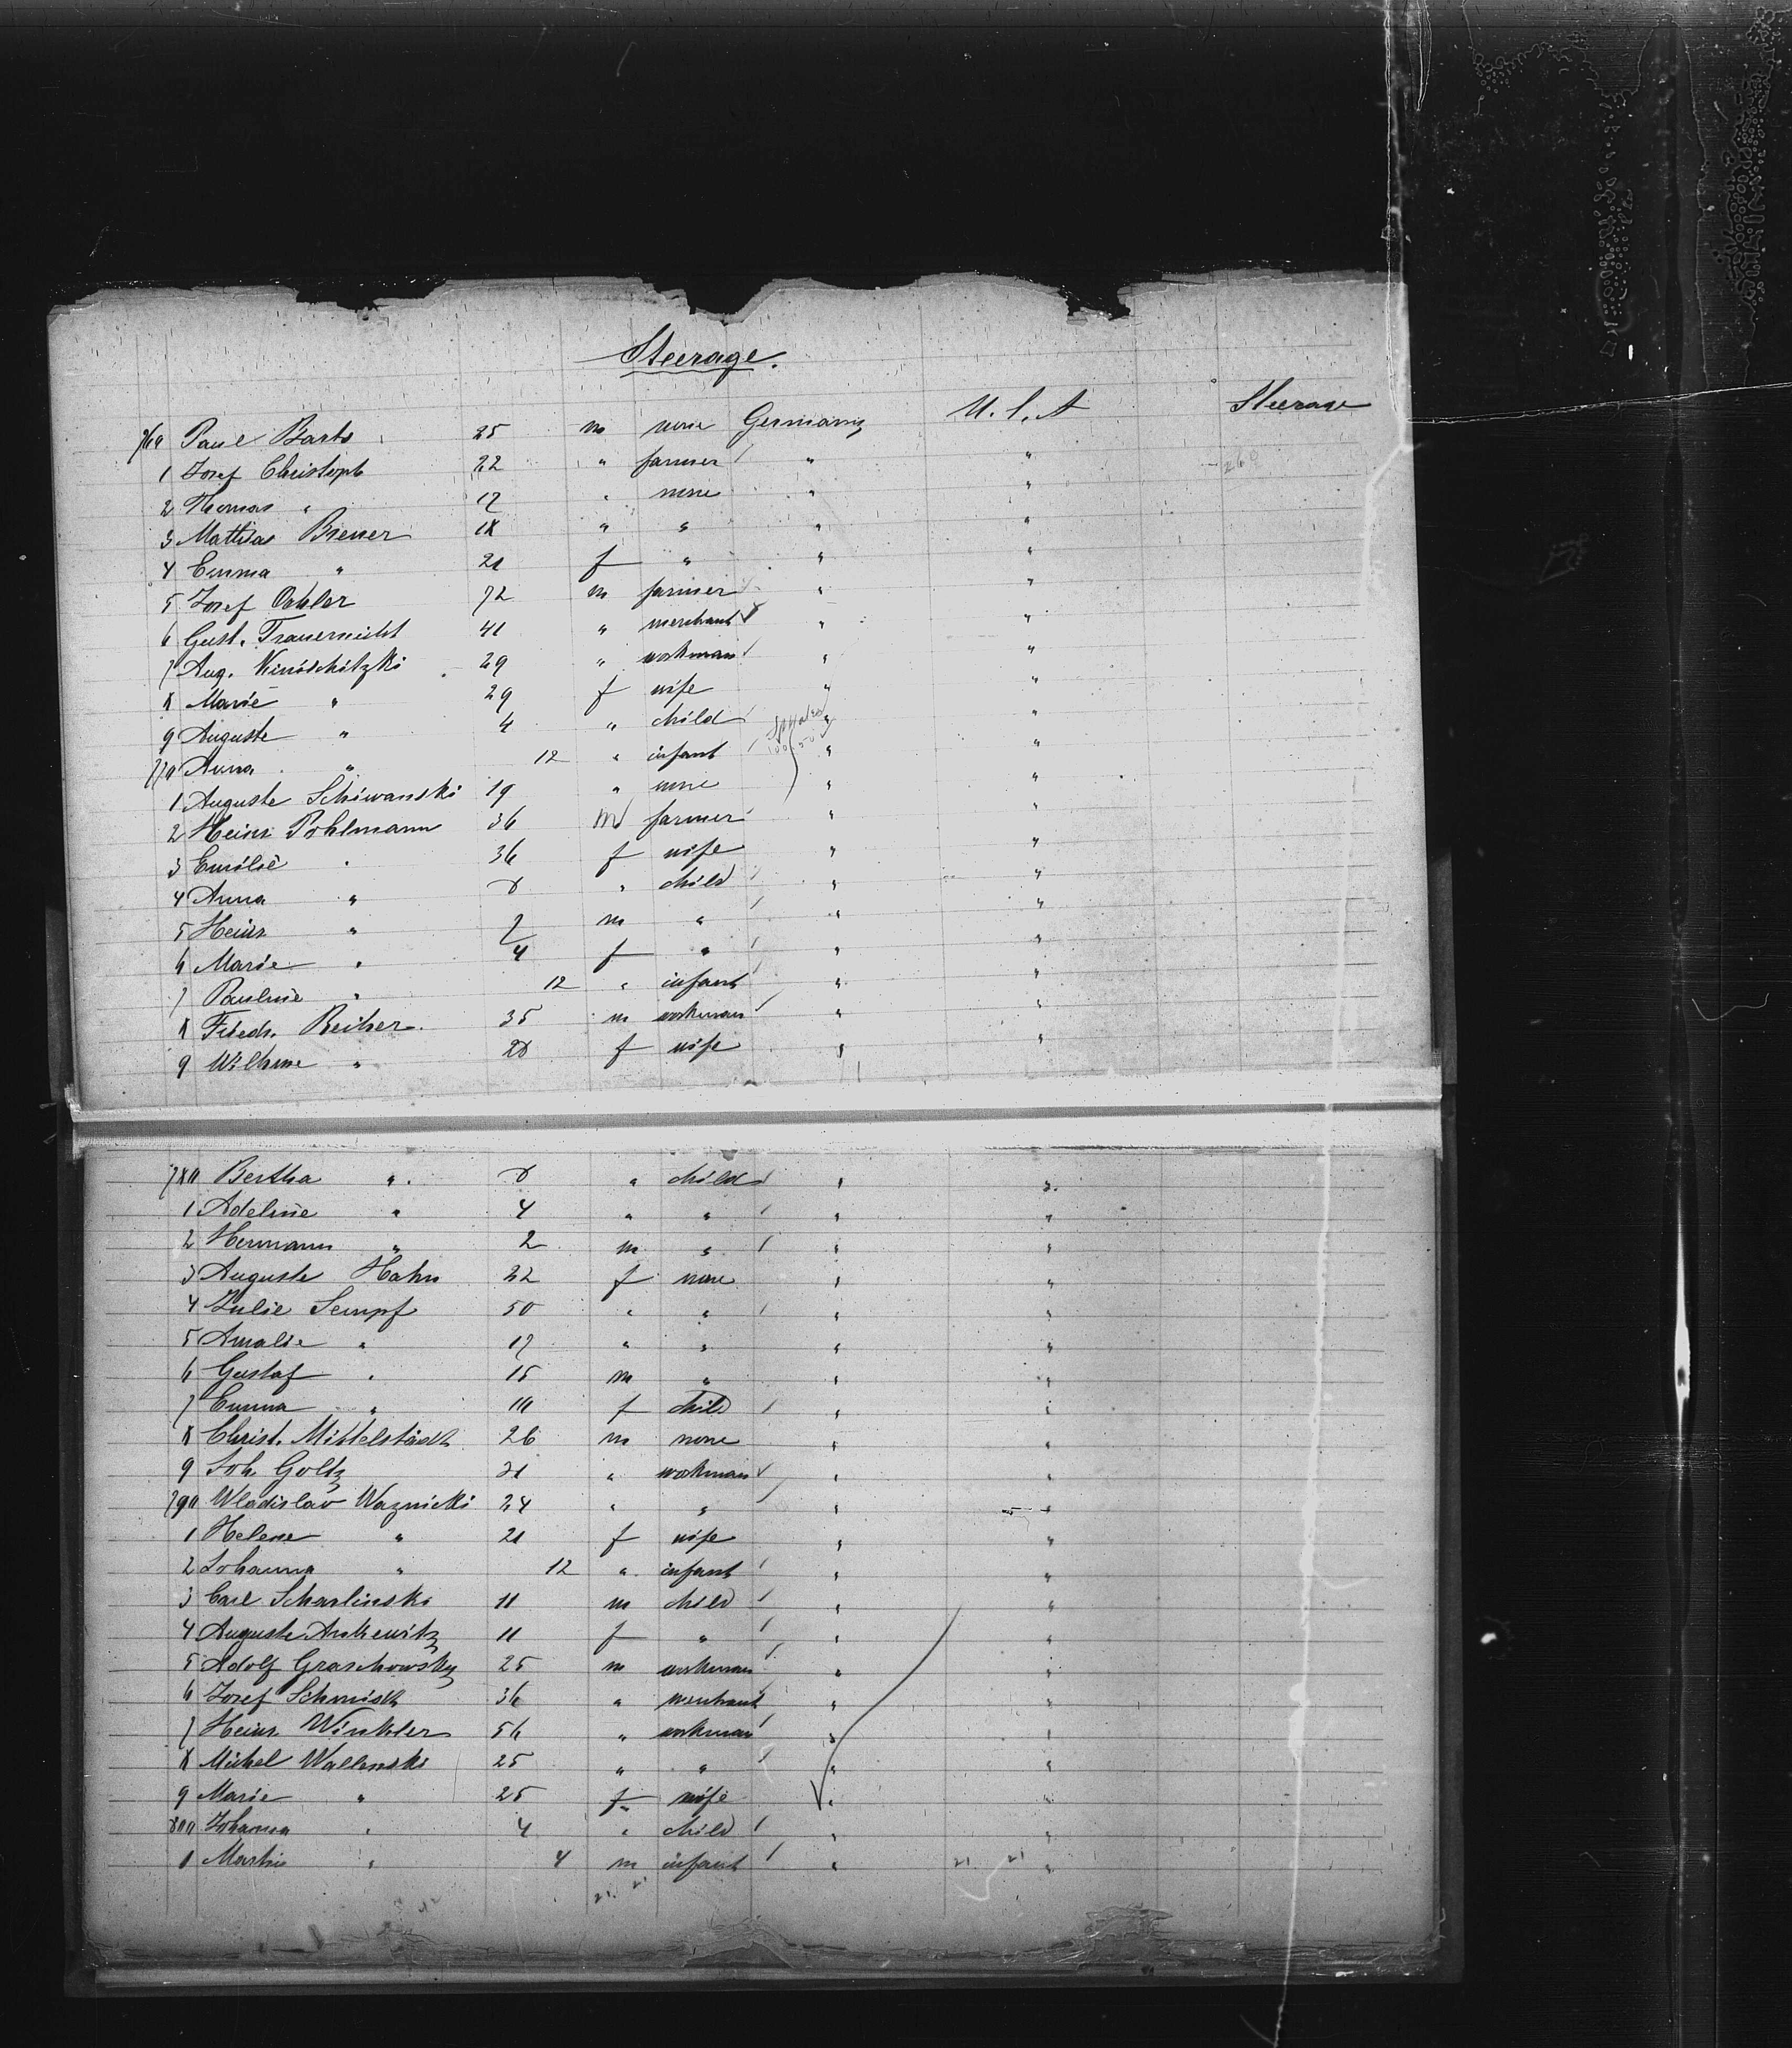 Steerage.
760 Paul Bartz 25 m none Germany U. S. A Steerage
1 Josef Christoph 22 " farmer " " 260
2 Thomas " 17 " none " "
3 Mathias Brener 18 " " " "
4 Emma " 21 f " " "
5 Josef Oehler 72 m farmer " "
6 Gust. Trauernicht 41 " merchant " "
7 Aug. 29 " workman " "
8 Marie " 29 f wife " "
9 Auguste " 4 " child " "
770 Anna " 12 " infant " "
1 Auguste Schiwanski 19 " none " "
2 Heinr. Pohlmann 36 m farmer " "
3 Emilie " 36 f wife " "
4 Anna " 8 " child " "
5 Heinr. " 7 m " " "
6 Marie " 4 f " " "
7 Pauline " 12 " infant " "
8 Friedr. 35 m workman " "
9 Wilhme " 28 f wife " "
780 Bertha " 8 " child " "
1 Adeline " 4 " " " "
2 Hermann " 2 m " " "
3 Auguste Hahn 22 f none " "
4 Julie Sempf 50 " " " "
5 Amalie " 17 " " " "
6 Gustaf " 15 m " " "
7 Emma " 10 f child " "
8 Christ. Mittelstädt 26 m none " "
9 Joh. Goltz 21 " workman " "
790 Wladislav Waznicki 24 " " " "
1 Helene " 21 f wife " "
2 Johanna " 12 " infant " "
3 Carl Scharlinski 11 m child " "
4 Auguste Ankewitz 11 f " " "
5 Adolf Graschowsky 25 m workman " "
6 Josef Schmidt 36 " merchant " "
7 Heinr. Winkler 56 " workman " "
8 Michel Wallenski 25 " " " "
9 Marie " 25 f wife " "
800 Johanna " 4 " child " "
1 Martin " 4 m infant " 21 21 "
21. 21